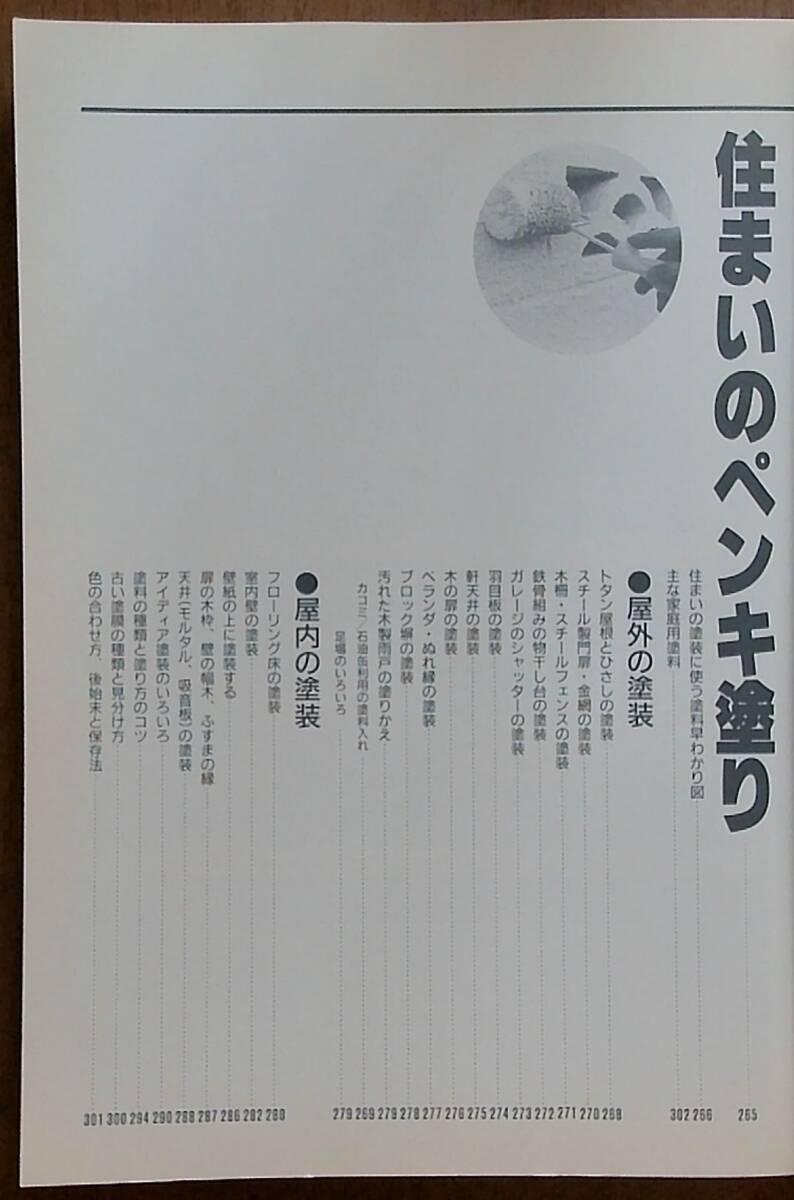 住まいのペンキ塗り 265
住まいの塗装に使う塗料早わかり図 266
主な家庭用塗料 302
●屋外の塗装
トタン屋根とひさしの塗装 268
スチール製門扉・金網の塗装 270
木柵・スチールフェンスの塗装 271
鉄骨組みの物干し台の塗装 272
ガレージのシャッターの塗装 273
羽目板の塗装 274
軒天井の塗装 275
木の扉の塗装 276
ベランダ・ぬれ縁の塗装 277
ブロック塀の塗装 278
汚れた木製雨戸の塗りかえ 279
カコミ／石油缶利用の塗料入れ 269
足場のいろいろ 279
●屋内の塗装
フローリング床の塗装 280
室内壁の塗装 282
壁紙の上に塗装する 286
扉の木枠、壁の幅木、ふすまの縁 287
天井(モルタル、吸音板)の塗装 288
アイディア塗装のいろいろ 290
塗料の種類と塗り方のコツ 294
古い塗膜の種類と見分け方 300
色の合わせ方、後始末と保存法 301